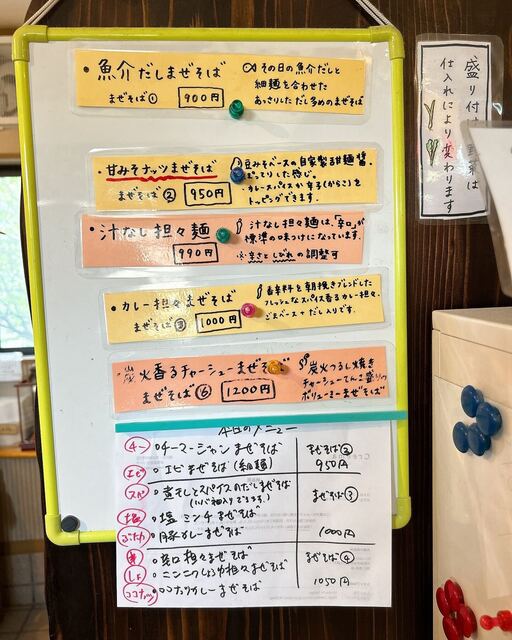 ・魚介だしまぜそば
まぜそば① 900円
その日の魚介だしと
細麺を合わせた
あっさりしただし多めのまぜそば
・甘みそナッツまぜそば
まぜそば② 950円
豆みそベースの自家製甜麺醤。
感じ。
・カレースパイスか辛子(からこ)を
トッピングできます。
・汁なし担々麺
990円
汁なし担々麺は、「辛口」が
標準の味つけになっています。
※辛さとしびれの調整可
・カレー担々まぜそば
まぜそば③ 1000円
香辛料を朝挽きブレンドした
フレッシュなスパイス香るカレー担々。
ごまベース+だし入りです。
・炭火香るチャーシューまぜそば
まぜそば⑥ 1200円
炭火つるし焼き
チャーシューてんこ盛り
ボリューミーまぜそば
盛り付け野菜は
仕入れにより変わります
本日のメニュー
チー ・チーマージャンまぜそば まぜそば②
エビ ・エビまぜそば(細麺) 950円
スパ ・煮干しとスパイスのだしまぜそば
まぜそば③
塩 ・塩ミンチまぜそば
ぶたカ ・豚カレーまぜそば 1000円
・辛口担々まぜそば まぜそば④
しょ ・ニンニクしょうゆ担々まぜそば
ココナッツ ・ココナッツカレーまぜそば 1050円